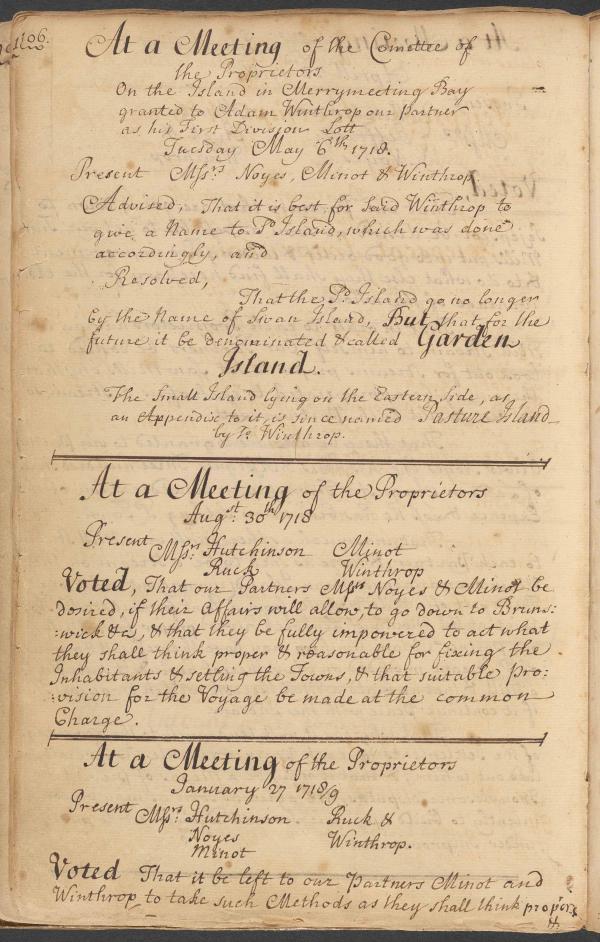 106.
At a Meeting of the Comittee of
the Proprietors
On the Island in Merrymeeting Bay
granted to Adam Winthrop our Partner
as his First Division Lott
Tuesday May 6th 1718.
Present Mssrs Noyes, Minot & Winthrop.
Advised, That it is best for said Winthrop to
give a Name to Sd Island, which was done
accordingly, and
Resolved,
That the Sd Island go no longer
by the Name of Swan Island, But that for the
future it be Denominated & called Garden
Island.
The Small Island lying on the Eastern Side, as
an Appendix to it, is since named Pasture Island
by Sd Winthrop.
At a Meeting of the Proprietors
Augst 30th 1718
Present Mssrs Hutchinson Minot
Ruck Winthrop
Voted, That our Partners Mssrs Noyes & Minot be
desired, if their Affairs will allow, to go down to Bruns:
:wick &c, & that they be fully impowered to act what
they shall think proper & reasonable for fixing the
Inhabitants & setling the Towns, & that suitable Pro:
:vision for the Voyage be made at the common
Charge.
At a Meeting of the Proprietors
January 27 1718/9
Present Mssrs Hutchinson Ruck &
Noyes Winthrop.
Minot
Voted That it be left to our Partners Minot and
Winthrop to take such Methods as they shall think proper